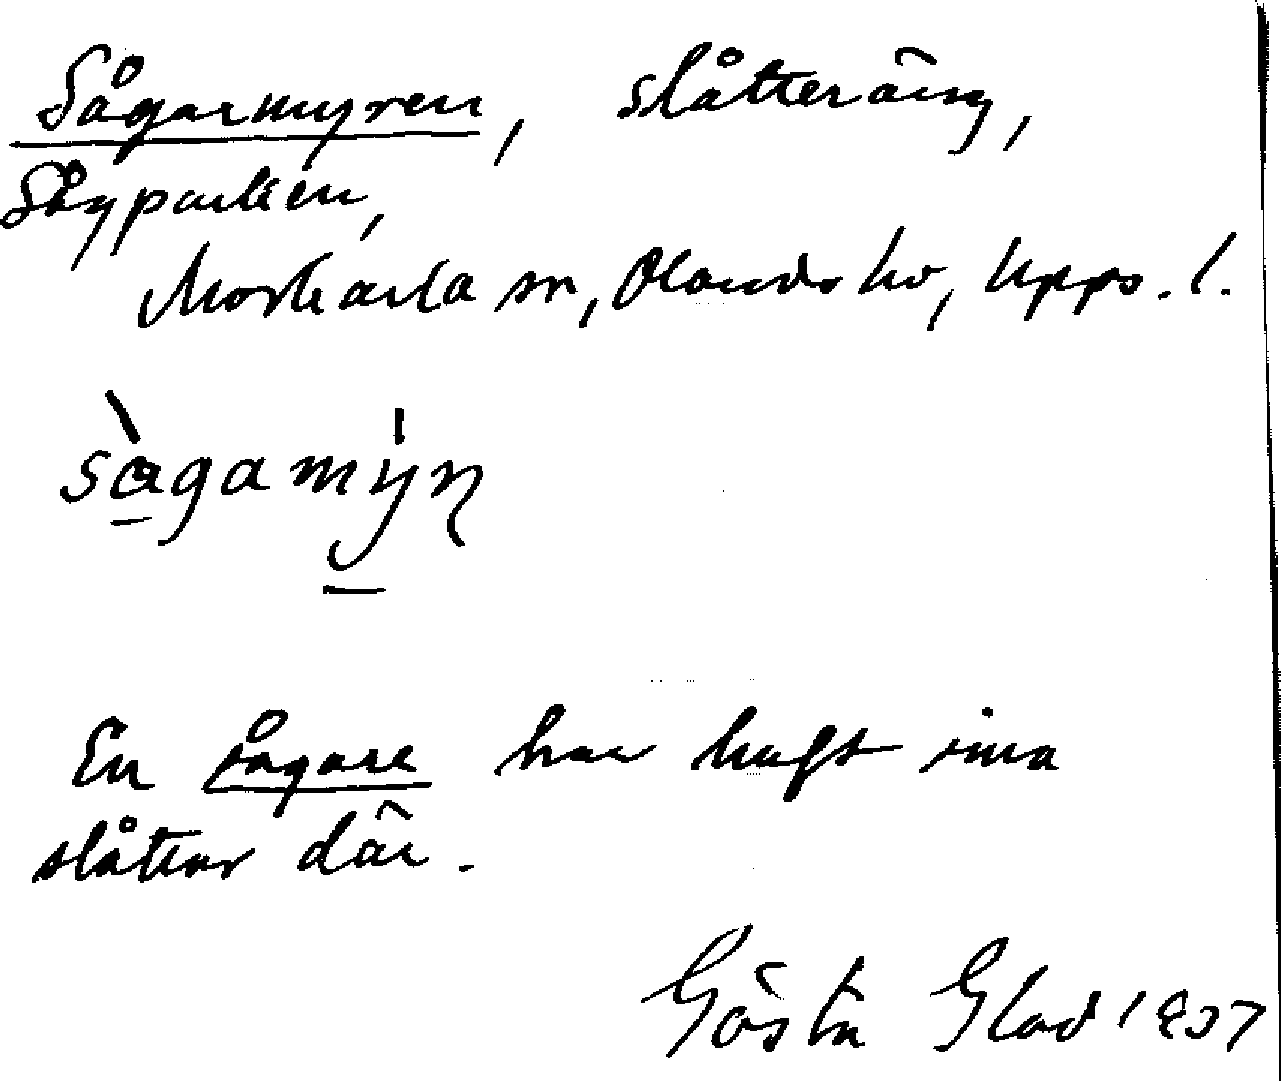 Sågarmyren, slåtteräng,
Sågparken,
Morkarla sn, Olands hd, Upps. l.
sàgamýn
En sågare har haft sina
slåtter där.
Gösta Glad 1937